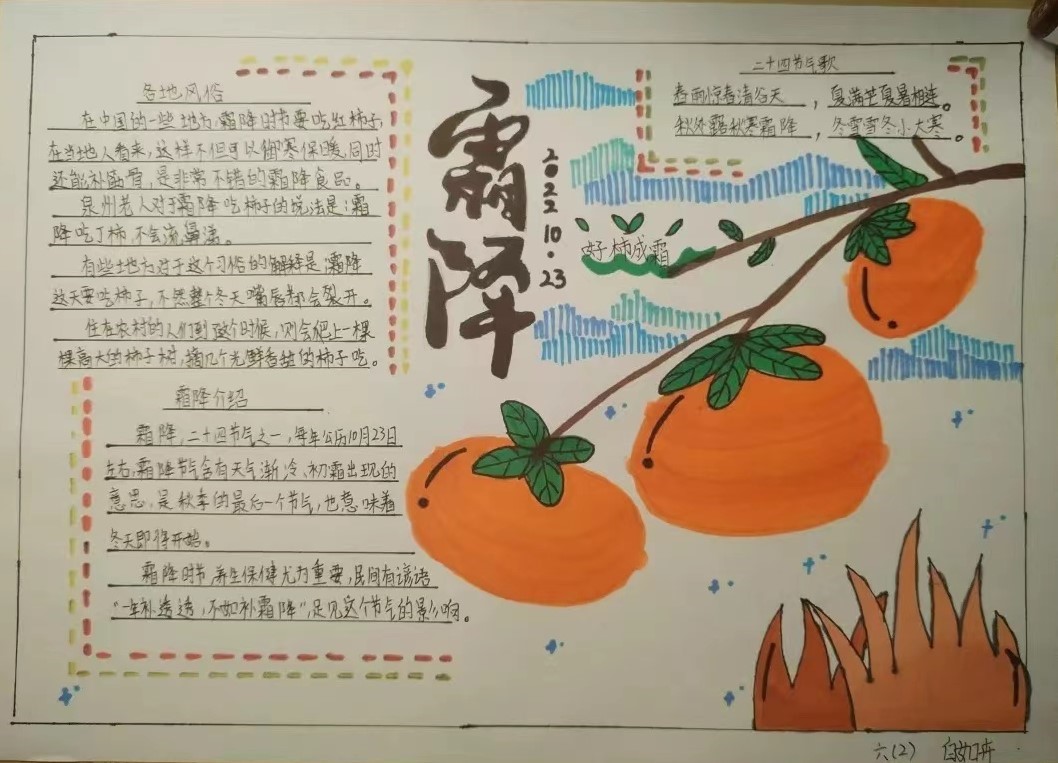 各地风俗
在中国的一些地方,霜降时节要吃红柿子,
在当地人看来,这样不但可以御寒保暖,同时
还能补筋骨,是非常不错的霜降食品。
泉州老人对于霜降吃柿子的说法是:霜
降吃丁柿,不会流鼻涕。
有些地方对于这个习俗的解释是:霜降
这天要吃柿子,不然整个冬天嘴唇都会裂开。
住在农村的人们到这个时候,则会爬上一棵
棵高大的柿子树,摘几个光鲜香甜的柿子吃。
霜降介绍
霜降,二十四节气之一,每年公历10月23日
左右,霜降节气含有天气渐冷、初霜出现的
意思,是秋季的最后一个节气,也意味着
冬天即将开始。
霜降时节,养生保健尤为重要,民间有谚语
“一年补透透,不如补霜降”,足见这个节气的影响。
霜降
2022.10.23
好柿成霜
二十四节气歌
春雨惊春清谷天,夏满芒夏暑相连。
秋处露秋寒霜降,冬雪雪冬小大寒。
六(2)